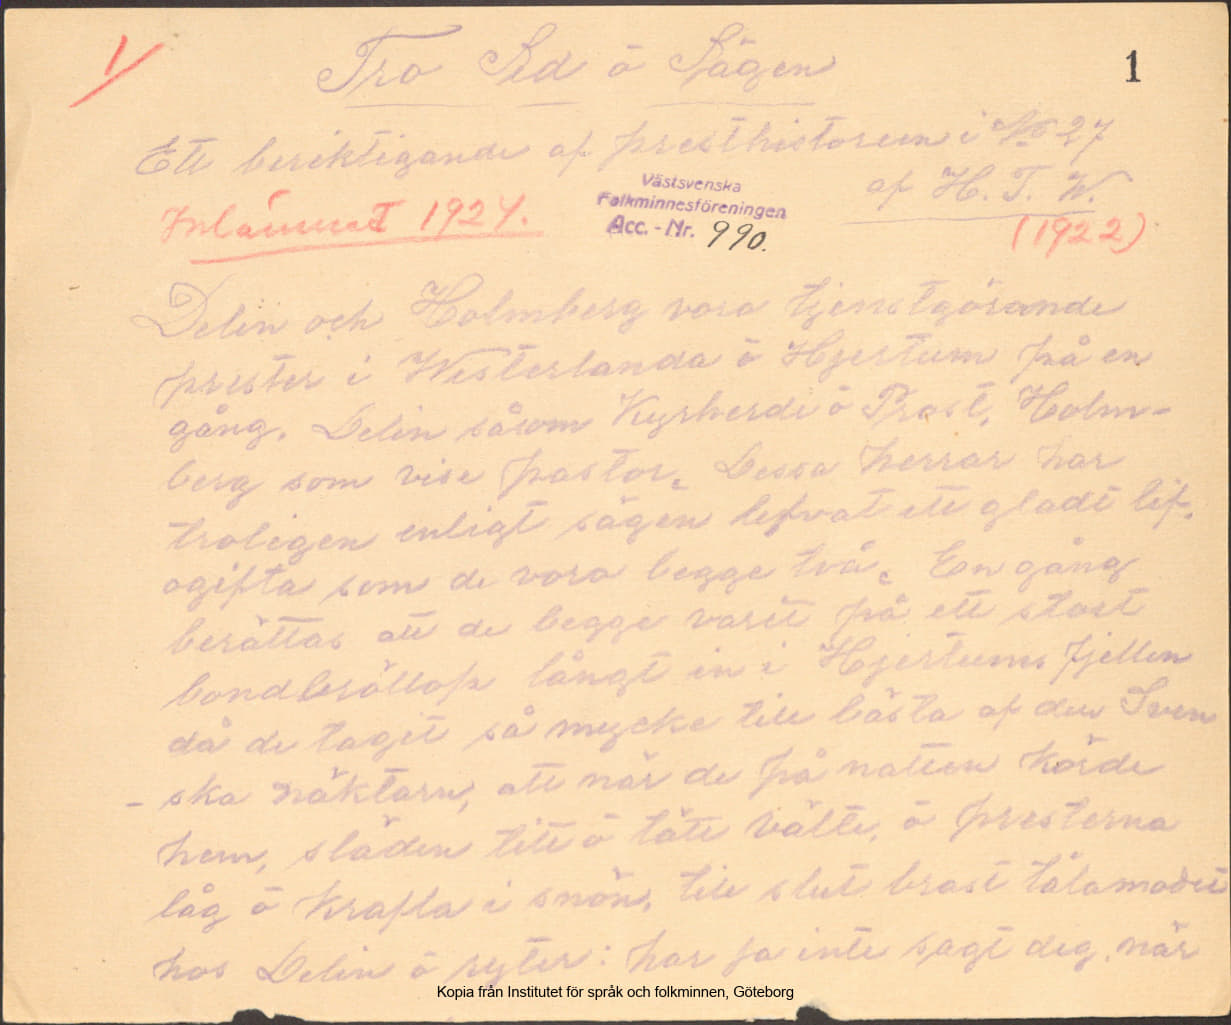 1
Tro Sed ö Sägen
Ett beriktigande af presthistorien i No 27
af H. T. W.
(1922)
Inlämnat 1924.
Västsvenska
Folkminnesföreningen
Acc. - Nr. 990.
Delin och Holmberg vora tjenstgörande
prester i Westerlanda ö Hjertum på en
gång. Delin såsom Kyrherde ö Prost, Holm-
berg som vise pastor. Dessa herrar har
troligen enligt sägen lefvat ett gladt lif.
ogifta som de vora begge två. En gång
berättas att de begge varit på ett stort
bondbröllop långt in i Hjertums fjellen
då de tagit så mycke till bästa af den Sven
- ska näktarn, att när de på natten körde
hem, släden titt ö tätt välte, ö presterna
låg ö krafla i snön, till slut brast tålamodet
hos Delin ö ryter: har ja inte sagt deg, när
Kopia från Institutet för språk och folkminnen, Göteborg